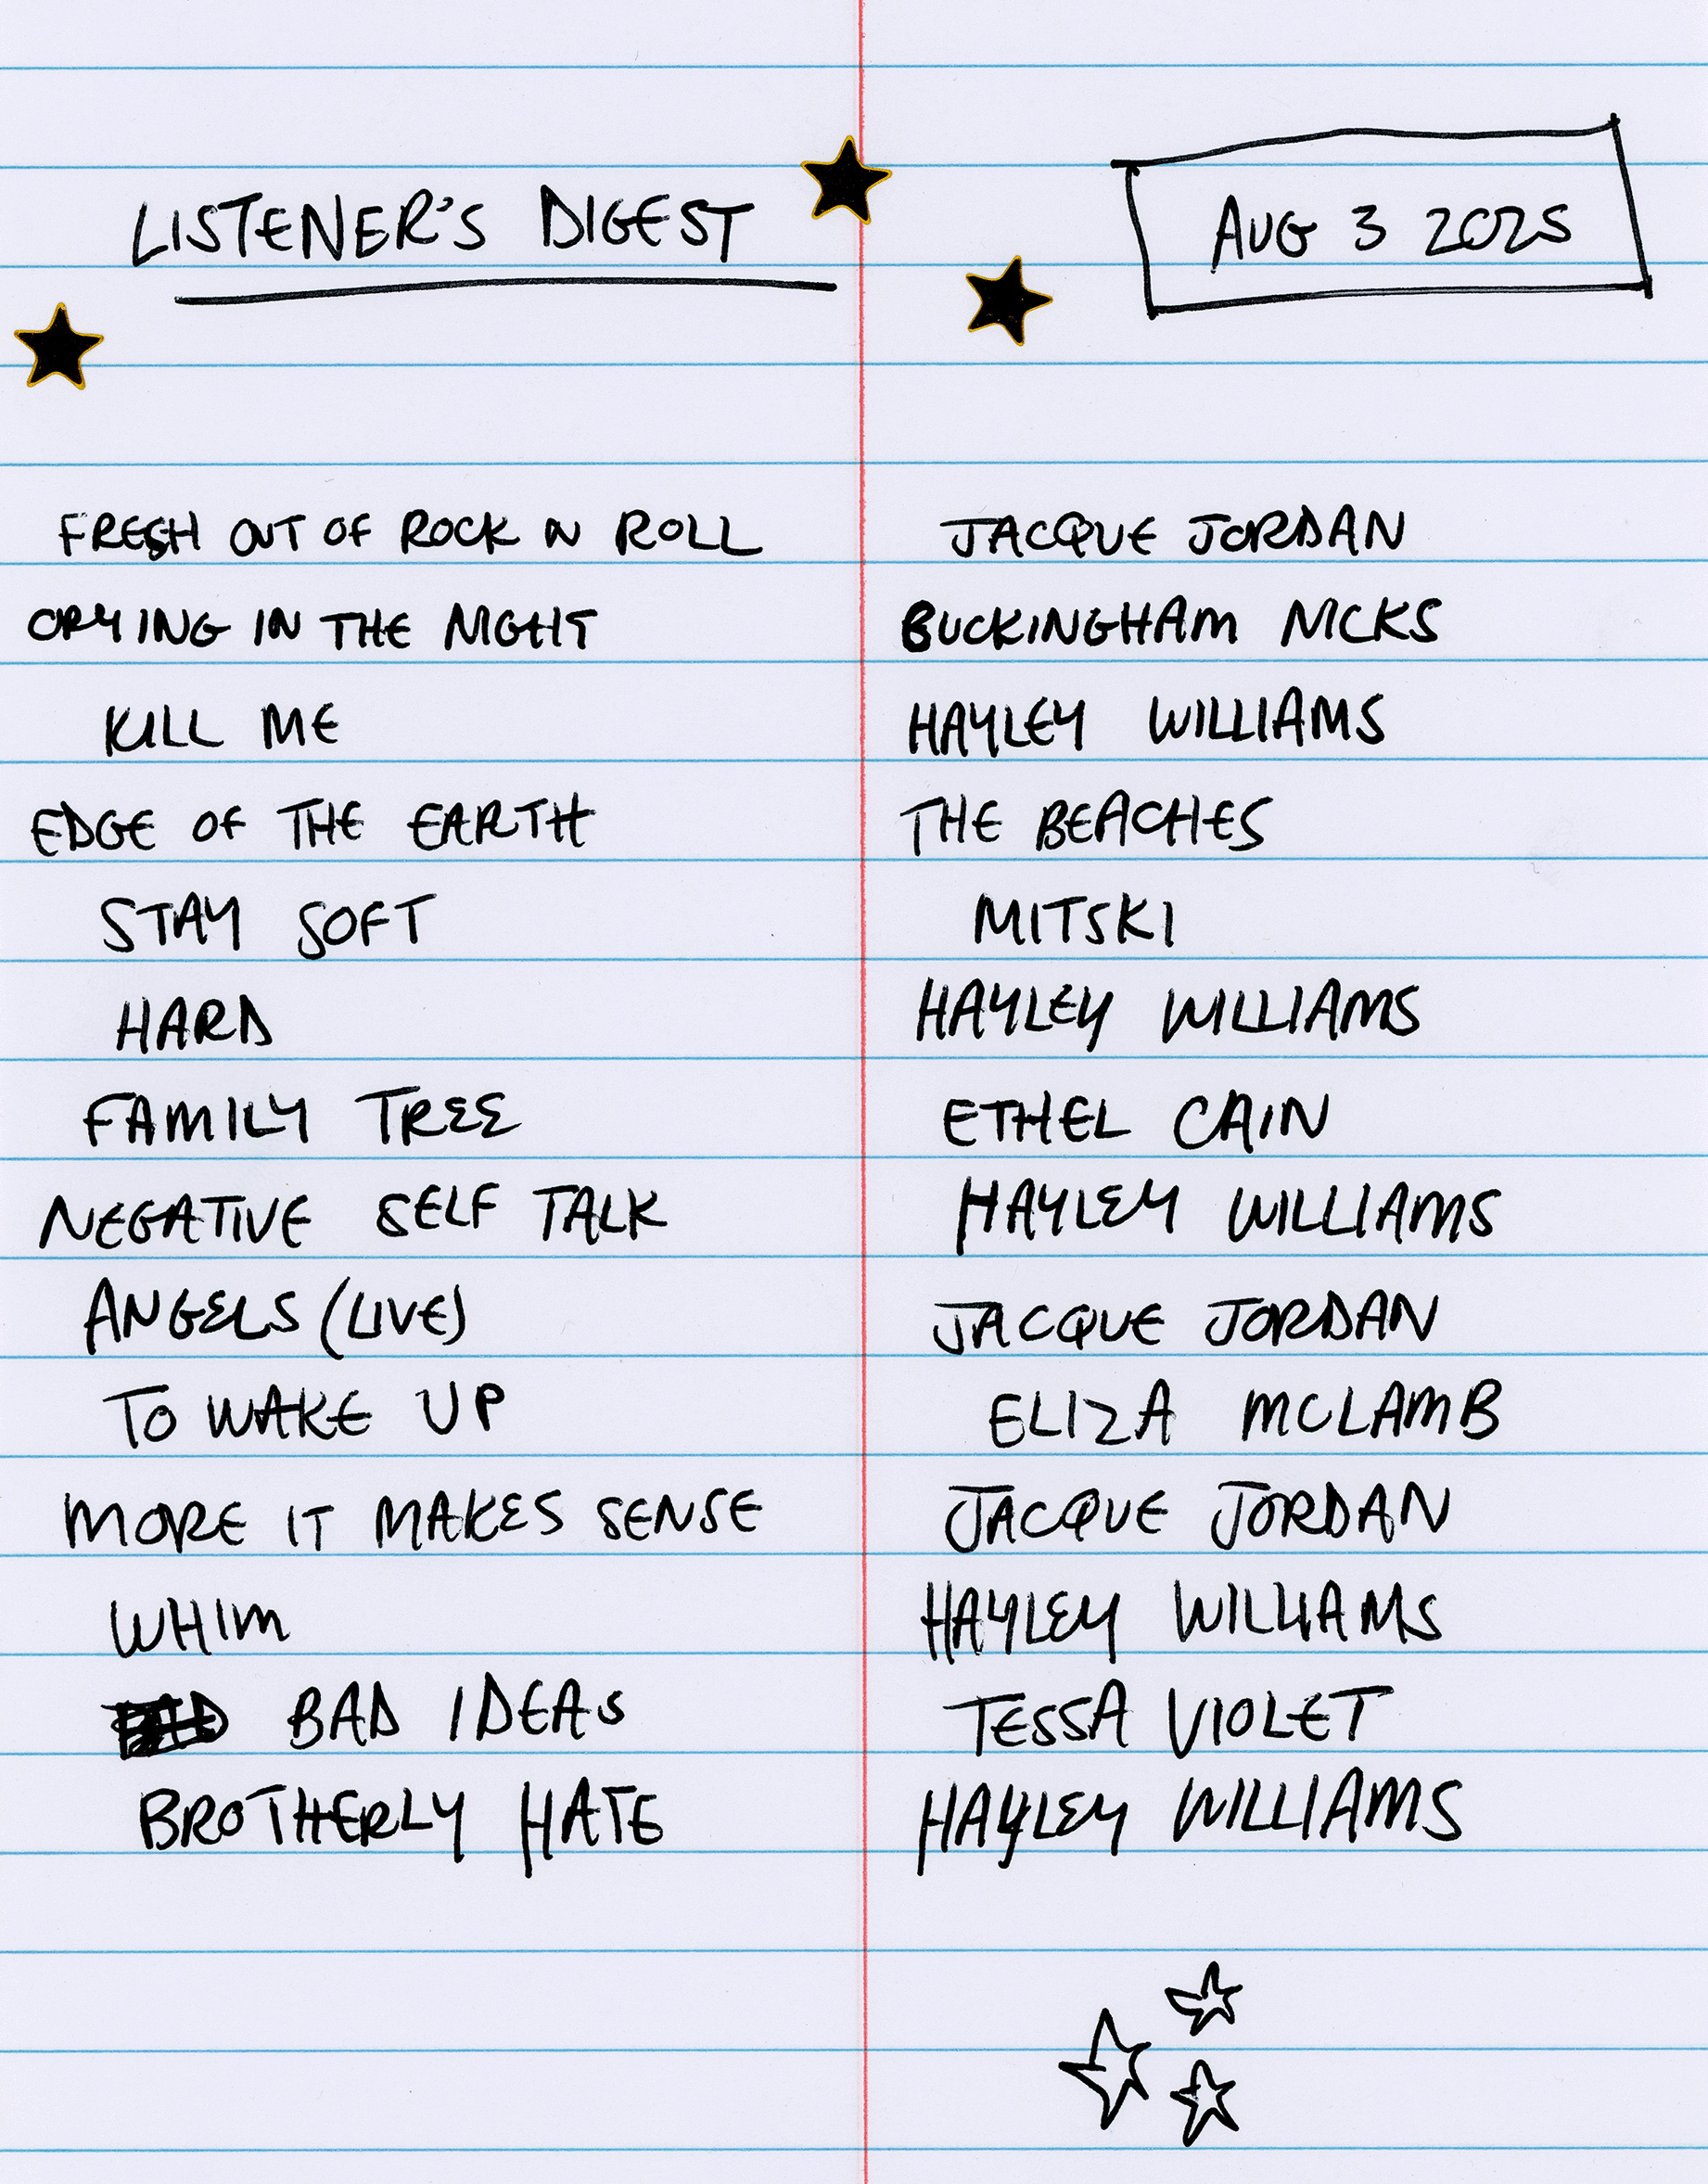 LISTENER'S DIGEST
AUG 3 2025
FRESH OUT OF ROCK N ROLL JACQUE JORDAN
CRYING IN THE NIGHT BUCKINGHAM NICKS
KILL ME HAYLEY WILLIAMS
EDGE OF THE EARTH THE BEACHES
STAY SOFT MITSKI
HARD HAYLEY WILLIAMS
FAMILY TREE ETHEL CAIN
NEGATIVE SELF TALK HAYLEY WILLIAMS
ANGELS (LIVE) JACQUE JORDAN
TO WAKE UP ELIZA MCLAMB
MORE IT MAKES SENSE JACQUE JORDAN
WHIM HAYLEY WILLIAMS
BAD IDEAS TESSA VIOLET
BROTHERLY HATE HAYLEY WILLIAMS